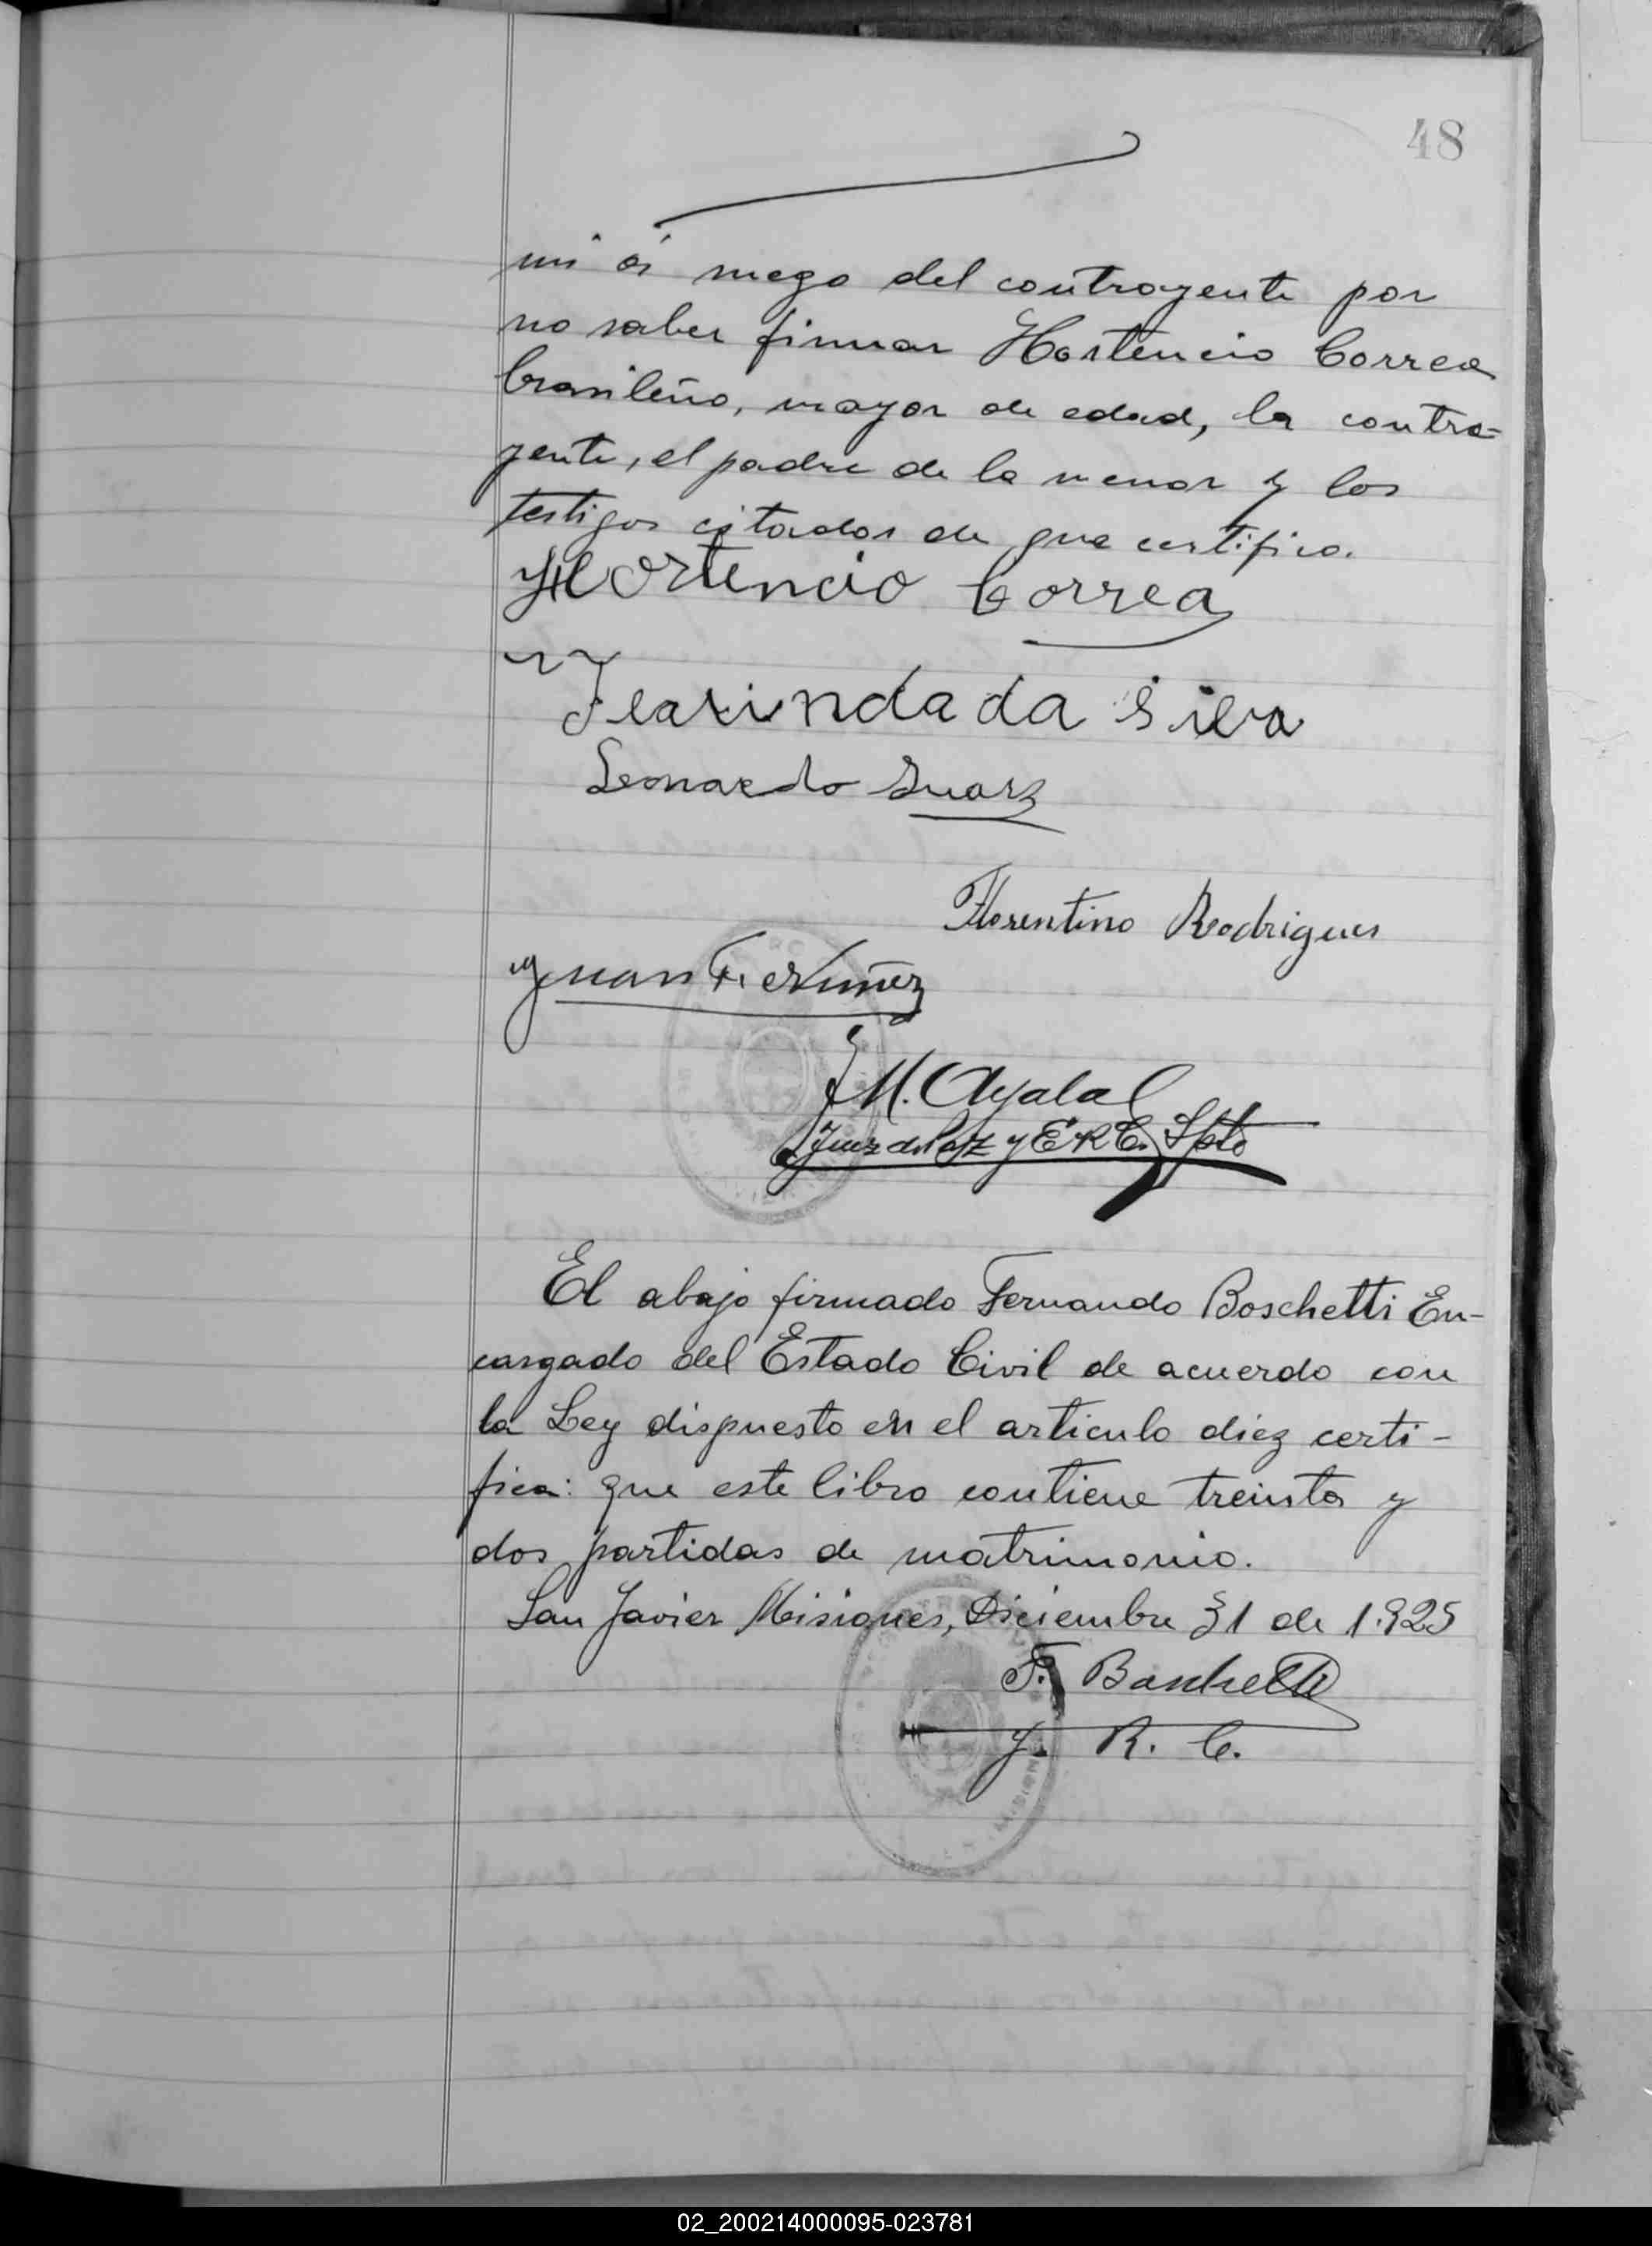 48
mi á ruego del contrayente por
no saber firmar Hortencio Correa
brasileño, mayor de edad, la contra=
yente, el padre de la menor y los
testigos citados de que certifico.
Hortencio Correa
Flarindada da Silva
Leonardo Suarz
Florentino Rodrigues
Juan F. Nuñez
M. Ayala
Juez de Paz y E R C. Spto
El abajo firmado Fernando Boschetti En-
cargado del Estado Civil de acuerdo con
la Ley dispuesto en el articulo diez certi-
fica: que este libro contiene treinta y
dos partidas de matrimonio.
San Javier Misiones, Diciembre 31 de 1.925
F. Boschetti
J. R. C.
02_200214000095-023781